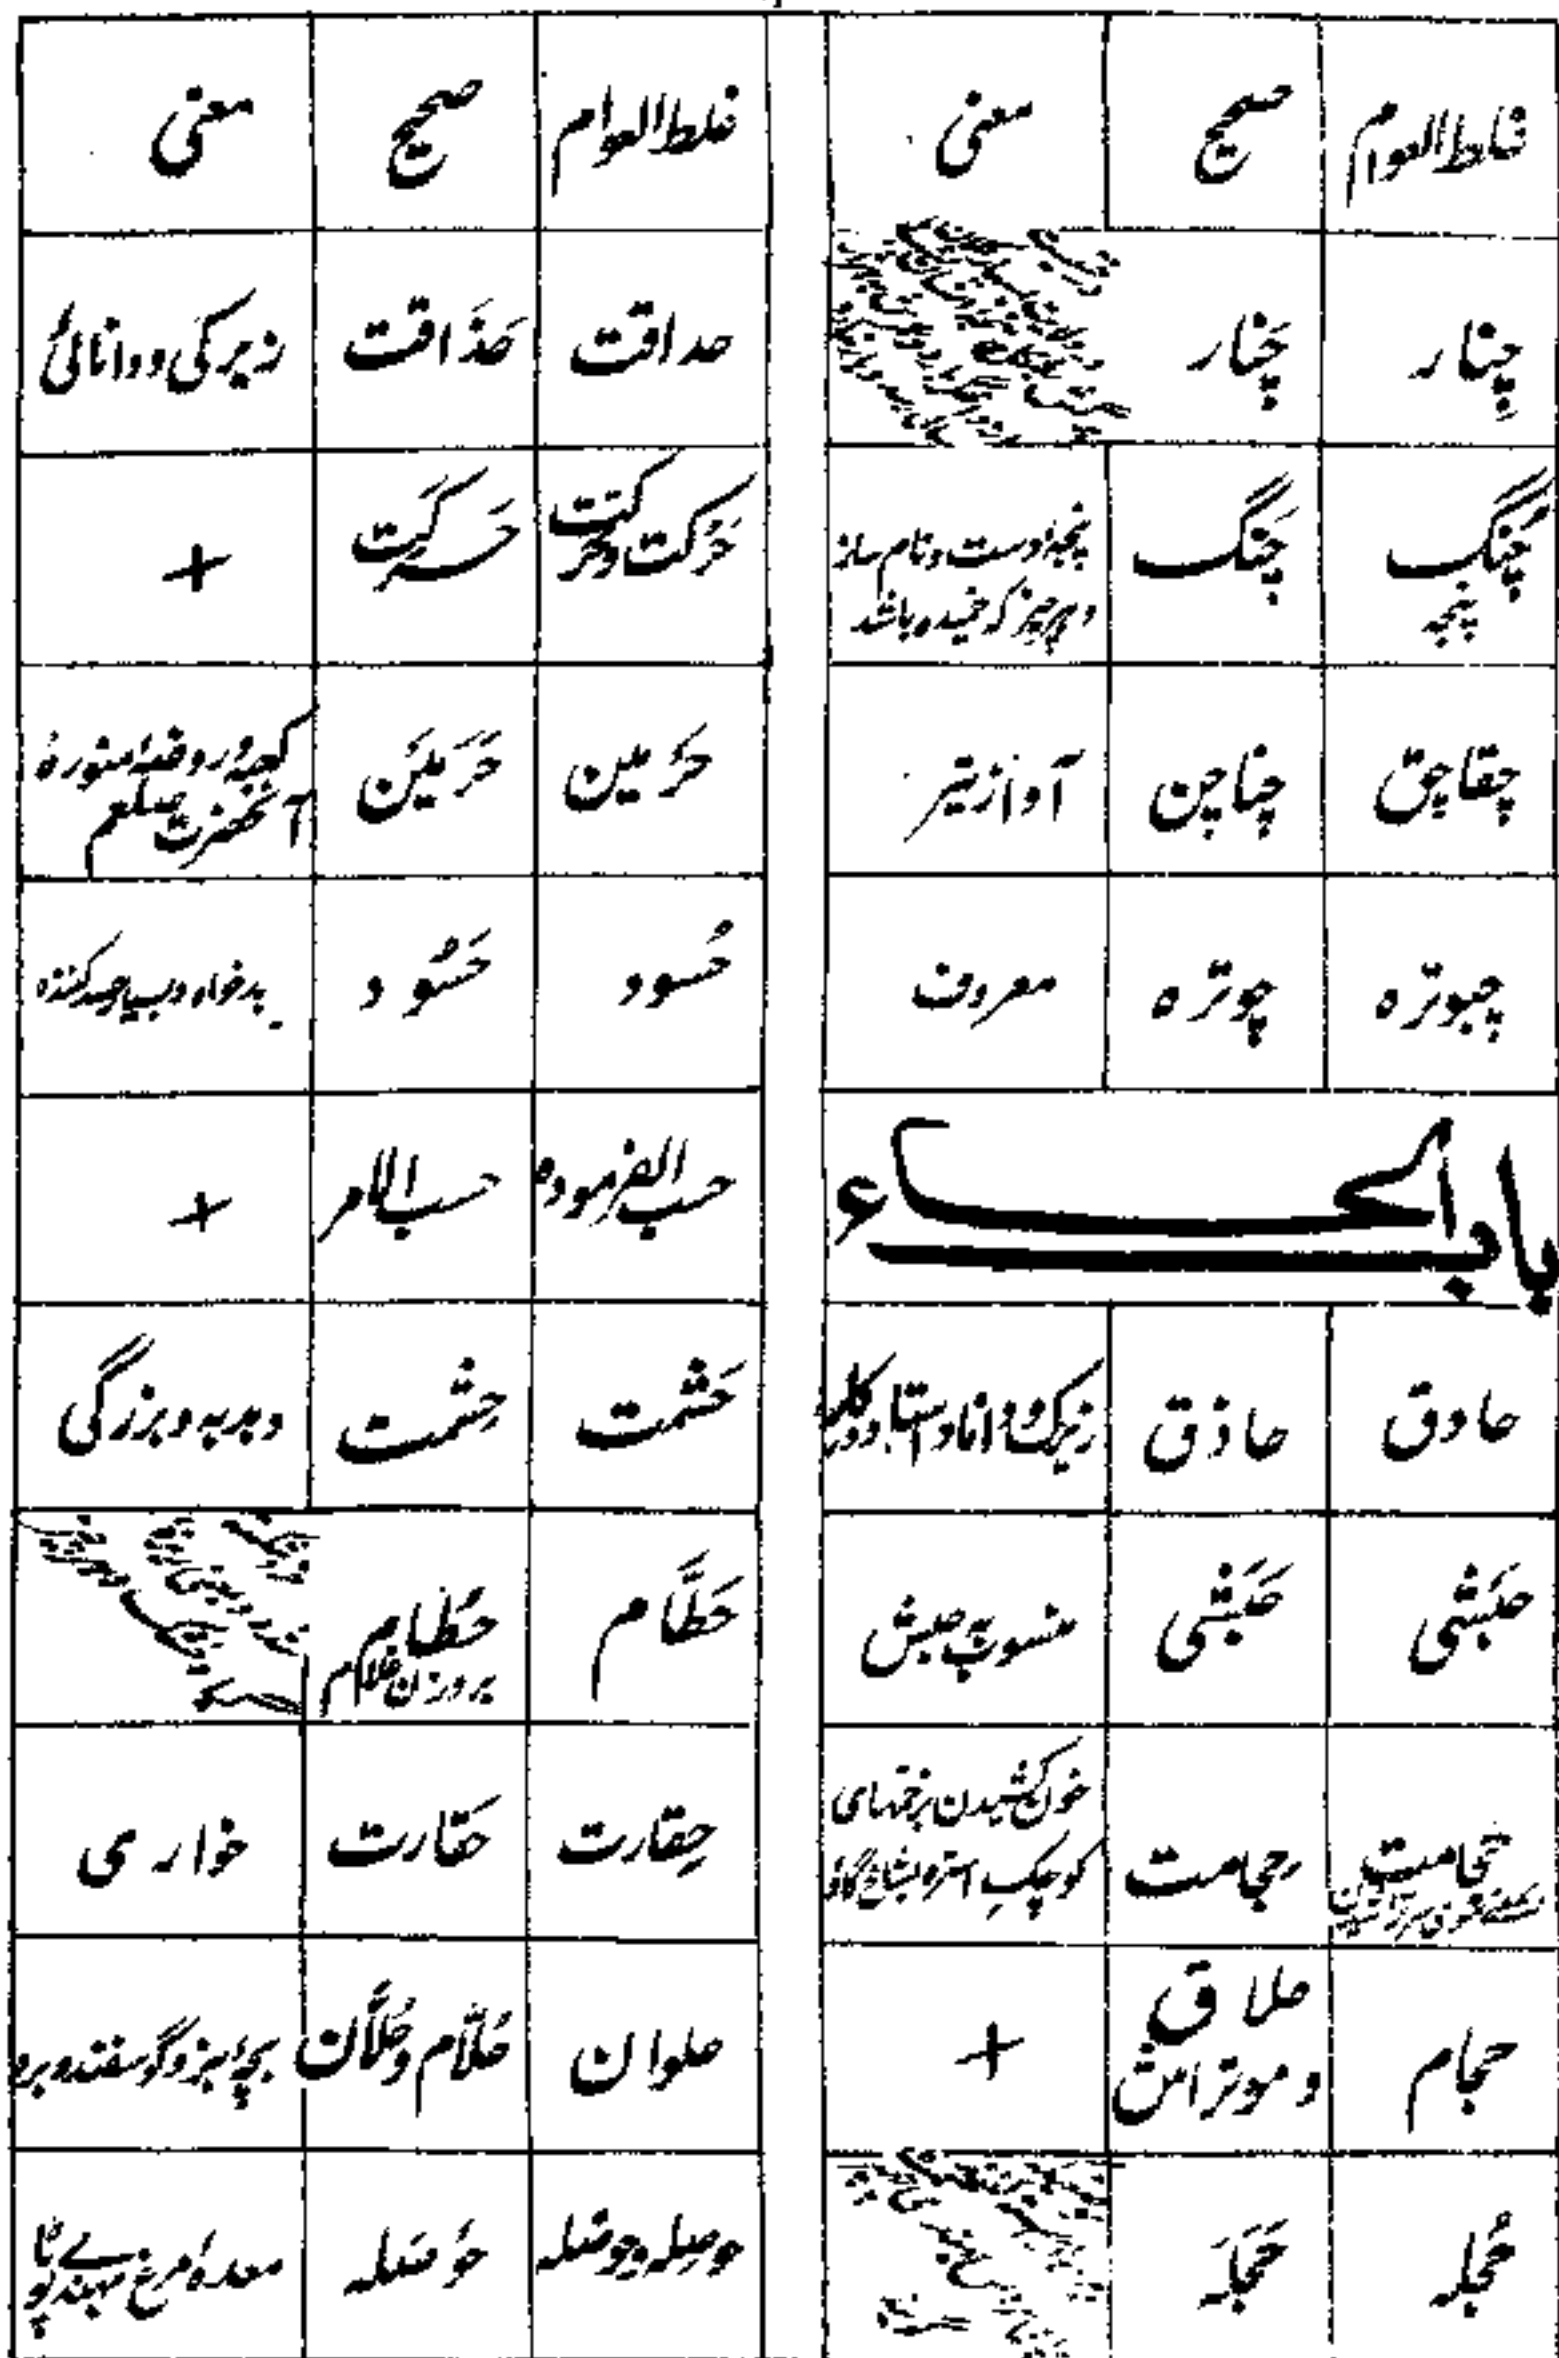 غلط العوام صحیح معنی
چِنار چَنار
چَنگ پنجہ چَنگ پنجہٴ دست و نام ساز
و ہر چیز کہ خمیدہ باشد
چقاچق چناچن آواز تیر
چبوترہ چوترہ معروف
باب الحاء
حادق حاذق زیرک و دانا و استاد در کار
حبشی حَبَشی منسوب بہ حبش
حجامت حِجامت خون کشیدن بزخمہای
کوچک استرہ
حجام حلاق
و موتراش +
حُجلہ حَجَلہ
غلط العوام صحیح معنی
حداقت حَذَاقت زیرکی و دانائی
حَرْکت وحرکت حَرَکَت +
حَرمین حَرَمَین کعبہ و روضہٴ منورہٴ
آنحضرت صلعم
حُسود حَسُود بدخواہ و بسیار حسد کنندہ
حسب الفرمودہ حسب الامر +
حَشمت حِشمت دبدبہ و بزرگی
حَطَّام حُطام
بر وزن غلام
حِقارت حَقارت خواری
حلوان حُلّام وحُلّان بچہٴ بز و گوسفند و برہ
حوصِلہ وحوصلہ حَوصَلہ معدہٴ مرغ بہندی پوٹا